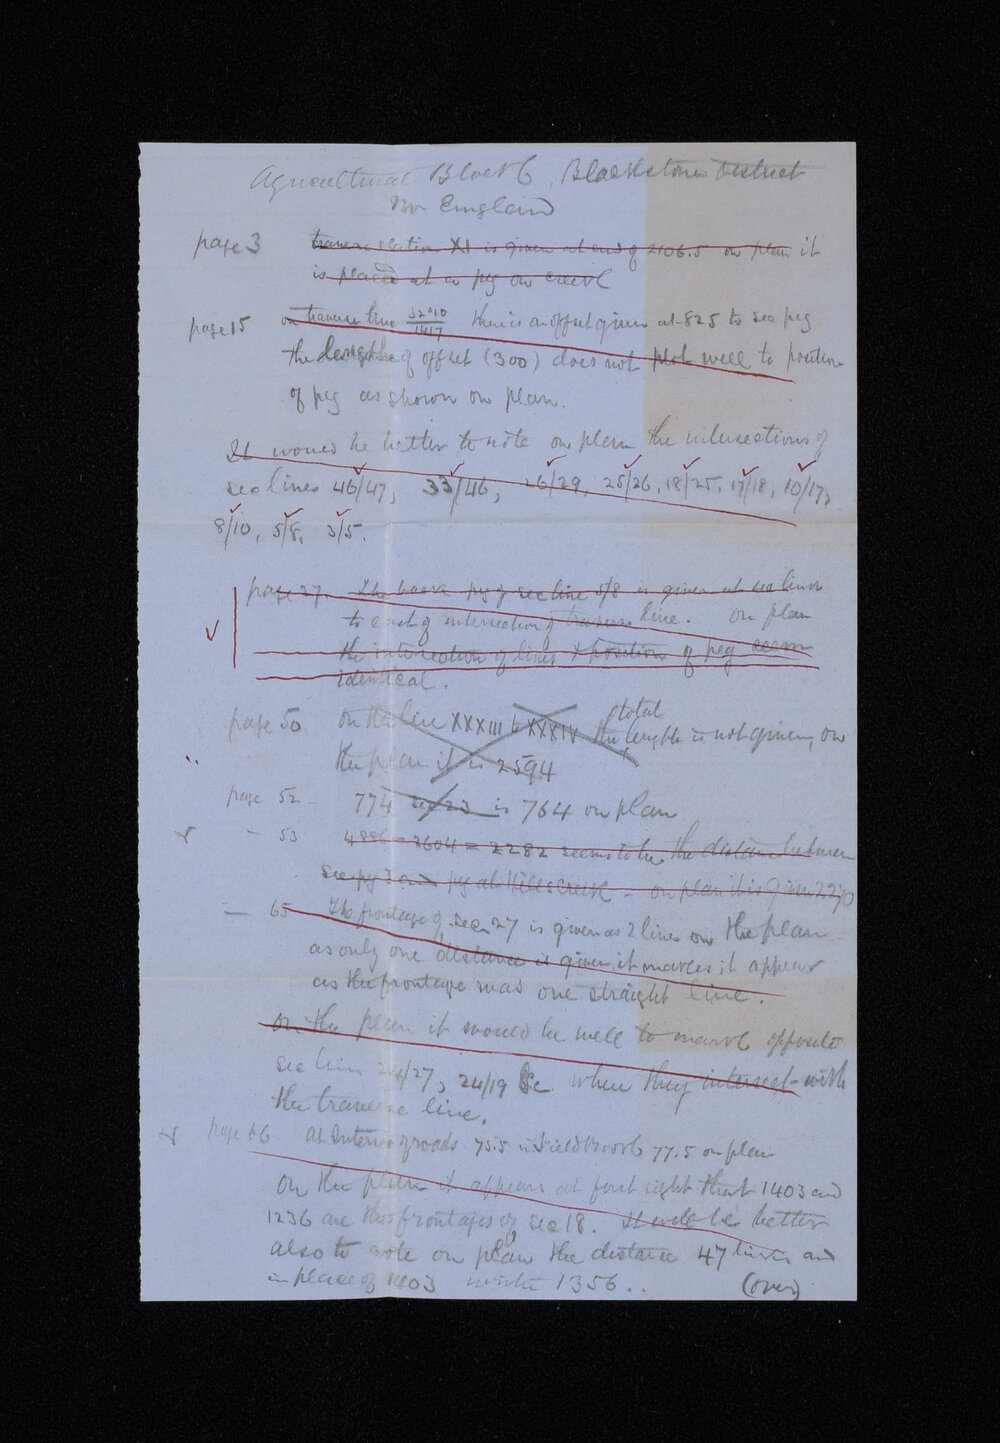 Agricultural Block 6, Blackstone District
Mr England
page 3 traverse station XI is given at end of 2106.5 on plan it
is placed at a peg on creek
page 15 on traverse line 32°10 / 1417 there is an offset given at 825 to sec peg
the length of offset (300) does not plot well to position
of peg as shown on plan.
It would be better to note on plan the intersections of
sec lines 46/47, 33/46, 26/29, 25/26, 18/25, 17/18, 10/17,
8/10, 5/8, 3/5.
page 27. The back peg of sec line 5/8 is given at
to east of intersection of traverse line. on plan
the intersection of lines & position of peg seem
identical.
page 50 on the line XXXIII to XXXIV the total length is not given, on
the plan it is 2594
page 52 774 sec 23 is 764 on plan
- 53 4886 - 2604 = 2282 seems to be the distance between
sec peg 3 and peg at Hills Creek - on plan it is given 2270
- 65 The frontage of sec 27 is given as 2 lines on the plan
as only one distance is given it makes it appear
as the frontage was one straight line.
on the plan it would be well to mark opposite
sec line 24/27, 24/19 &c where they intersect with
the traverse line.
page 66 At Inter of roads 75.5 in Field Book 77.5 on plan
On the plan it appears at first sight that 1403 and
1236 are the frontages of sec 18. It will be better
also to note on plan the distance 47 links and
in place of 1403 write 1356..
(over)